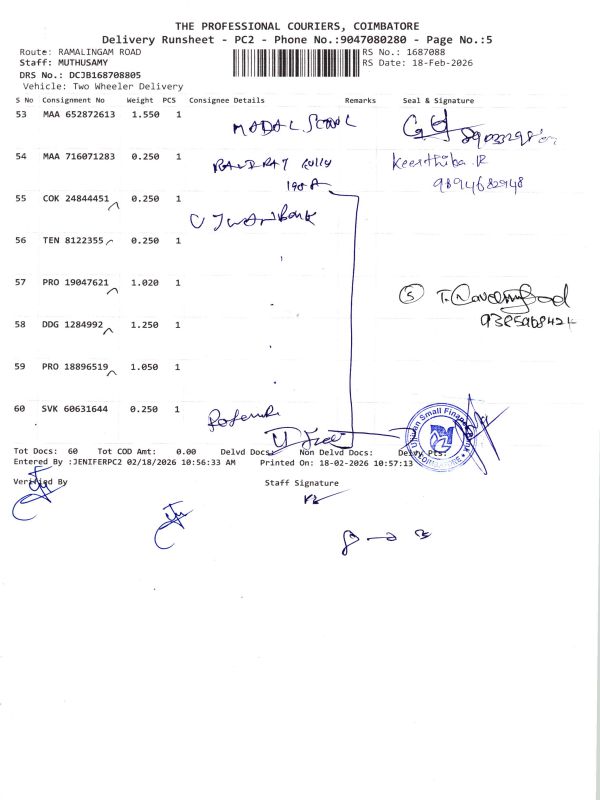 THE PROFESSIONAL COURIERS, COIMBATORE
Delivery Runsheet - PC2 - Phone No.:9047080280 - Page No.:5
Route: RAMALINGAM ROAD
RS No.: 1687088
Staff: MUTHUSAMY
RS Date: 18-Feb-2026
DRS No.: DCJB168708805
Vehicle: Two Wheeler Delivery
S No Consignment No Weight PCS Consignee Details Remarks Seal & Signature
53 MAA 652872613 1.550 1
54 MAA 716071283 0.250 1 Keerthiba.R
9894682948
55 COK 24844451 0.250 1
56 TEN 8122355 0.250 1
57 PRO 19047621 1.020 1
5
58 DDG 1284992 1.250 1
59 PRO 18896519 1.050 1
60 SVK 60631644 0.250 1
Ujjivan Small Finance Bank
COIMBATORE
Tot Docs: 60 Tot COD Amt: 0.00 Delvd Docs: Non Delvd Docs: Delvy Pts:
Entered By :JENIFERPC2 02/18/2026 10:56:33 AM Printed On: 18-02-2026 10:57:13
Verified By Staff Signature